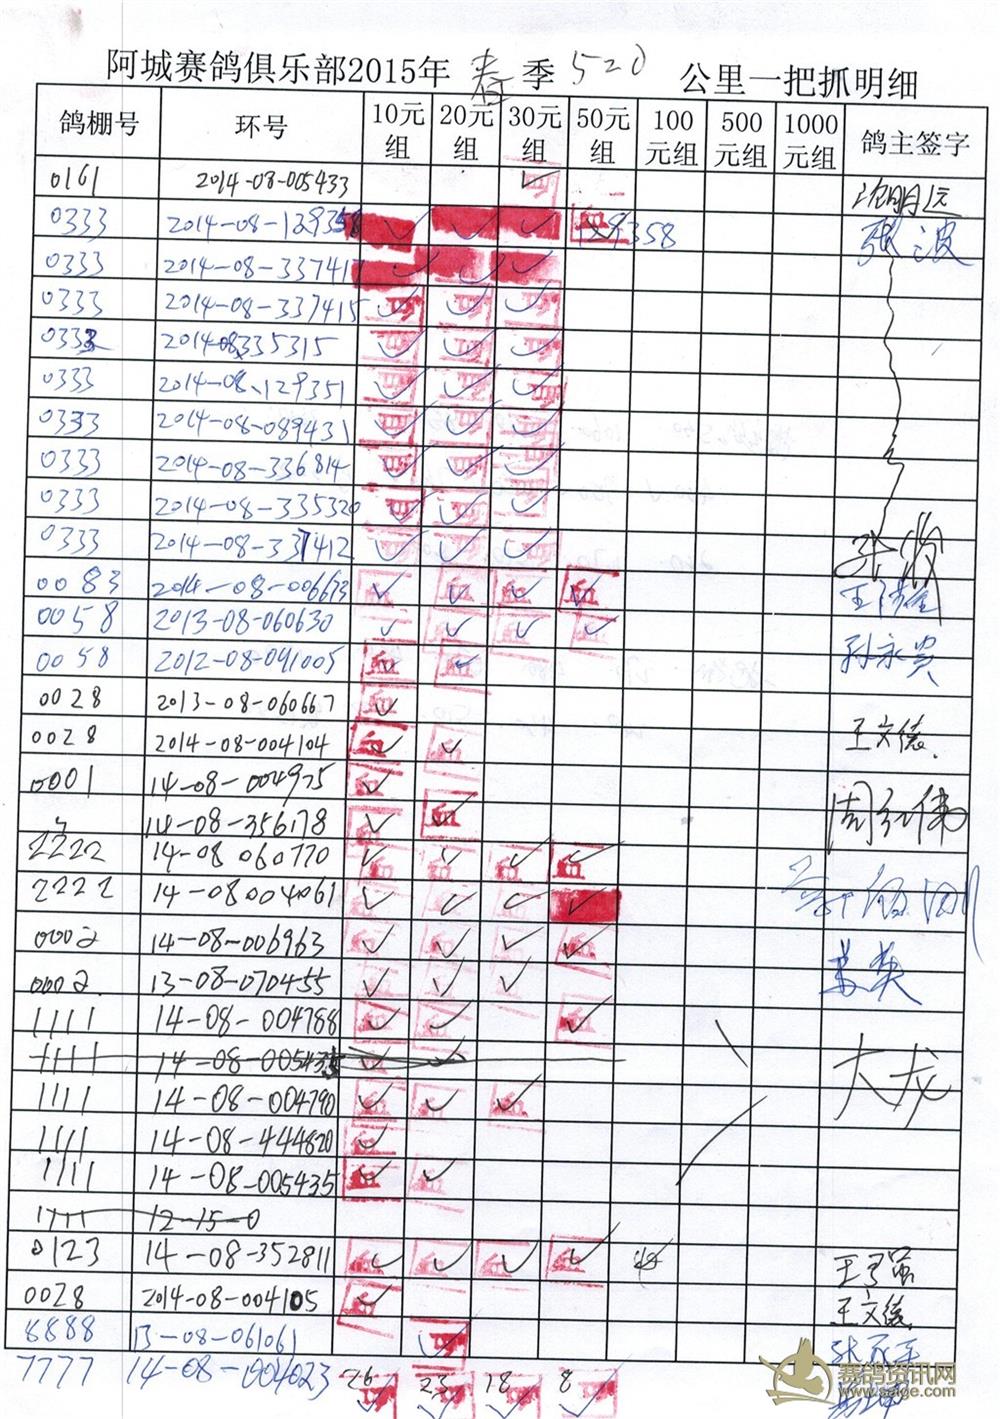 阿城赛鸽俱乐部2015年 春 季 520 公里一把抓明细
鸽棚号 环号 10元组 20元组 30元组 50元组 100元组 500元组 1000元组 鸽主签字
0161 2014-08-005433 ✓
0333 2014-08-129358 ✓ ✓ ✓ 129358 张波
0333 2014-08-337417 ✓ ✓ ✓
0333 2014-08-337415 ✓ ✓ ✓
0333 2014-08-335315 ✓ ✓ ✓
0333 2014-08-129351 ✓ ✓ ✓
0333 2014-08-089431 ✓ ✓ ✓
0333 2014-08-336814 ✓ ✓ ✓
0333 2014-08-335320 ✓ ✓ ✓
0333 2014-08-337412 ✓ ✓ ✓
0083 2014-08-006673 ✓ ✓ ✓ ✓
0058 2013-08-060630 ✓ ✓ ✓ ✓ 孙永贵
0058 2012-08-091005 ✓
0028 2013-08-060667 ✓
0028 2014-08-004104 ✓ ✓ 王文德
0001 14-08-004975 ✓
14-08-356178 ✓ ✓
2222 14-08 060770 ✓ ✓ ✓ ✓
2222 14-08004061 ✓ ✓ ✓ ✓
0002 14-08-006963 ✓ ✓ ✓ ✓
0002 13-08-070455 ✓ ✓ ✓
1111 14-08-004788 ✓ ✓ ✓
1111 14-08-005435 ✓ ✓ 大龙
1111 14-08-004790 ✓ ✓ ✓
1111 14-08-444820 ✓
1111 14-08-005435 ✓ ✓
1111 12-15-0
0123 14-08-352811 ✓ ✓ ✓ ✓
0028 2014-08-004105 ✓ 王文德
8888 13-08-061061 ✓
7777 14-08-004023 26 23 18 8
赛鸽资讯网
www.saige.com